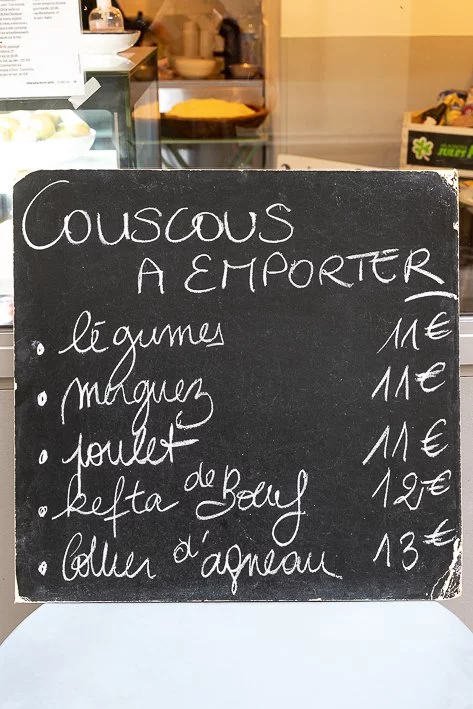 COUSCOUS
A EMPORTER
• légumes 11€
• merguez 11€
• poulet 11€
• kefta de Boeuf 12€
• Collier d'agneau 13€